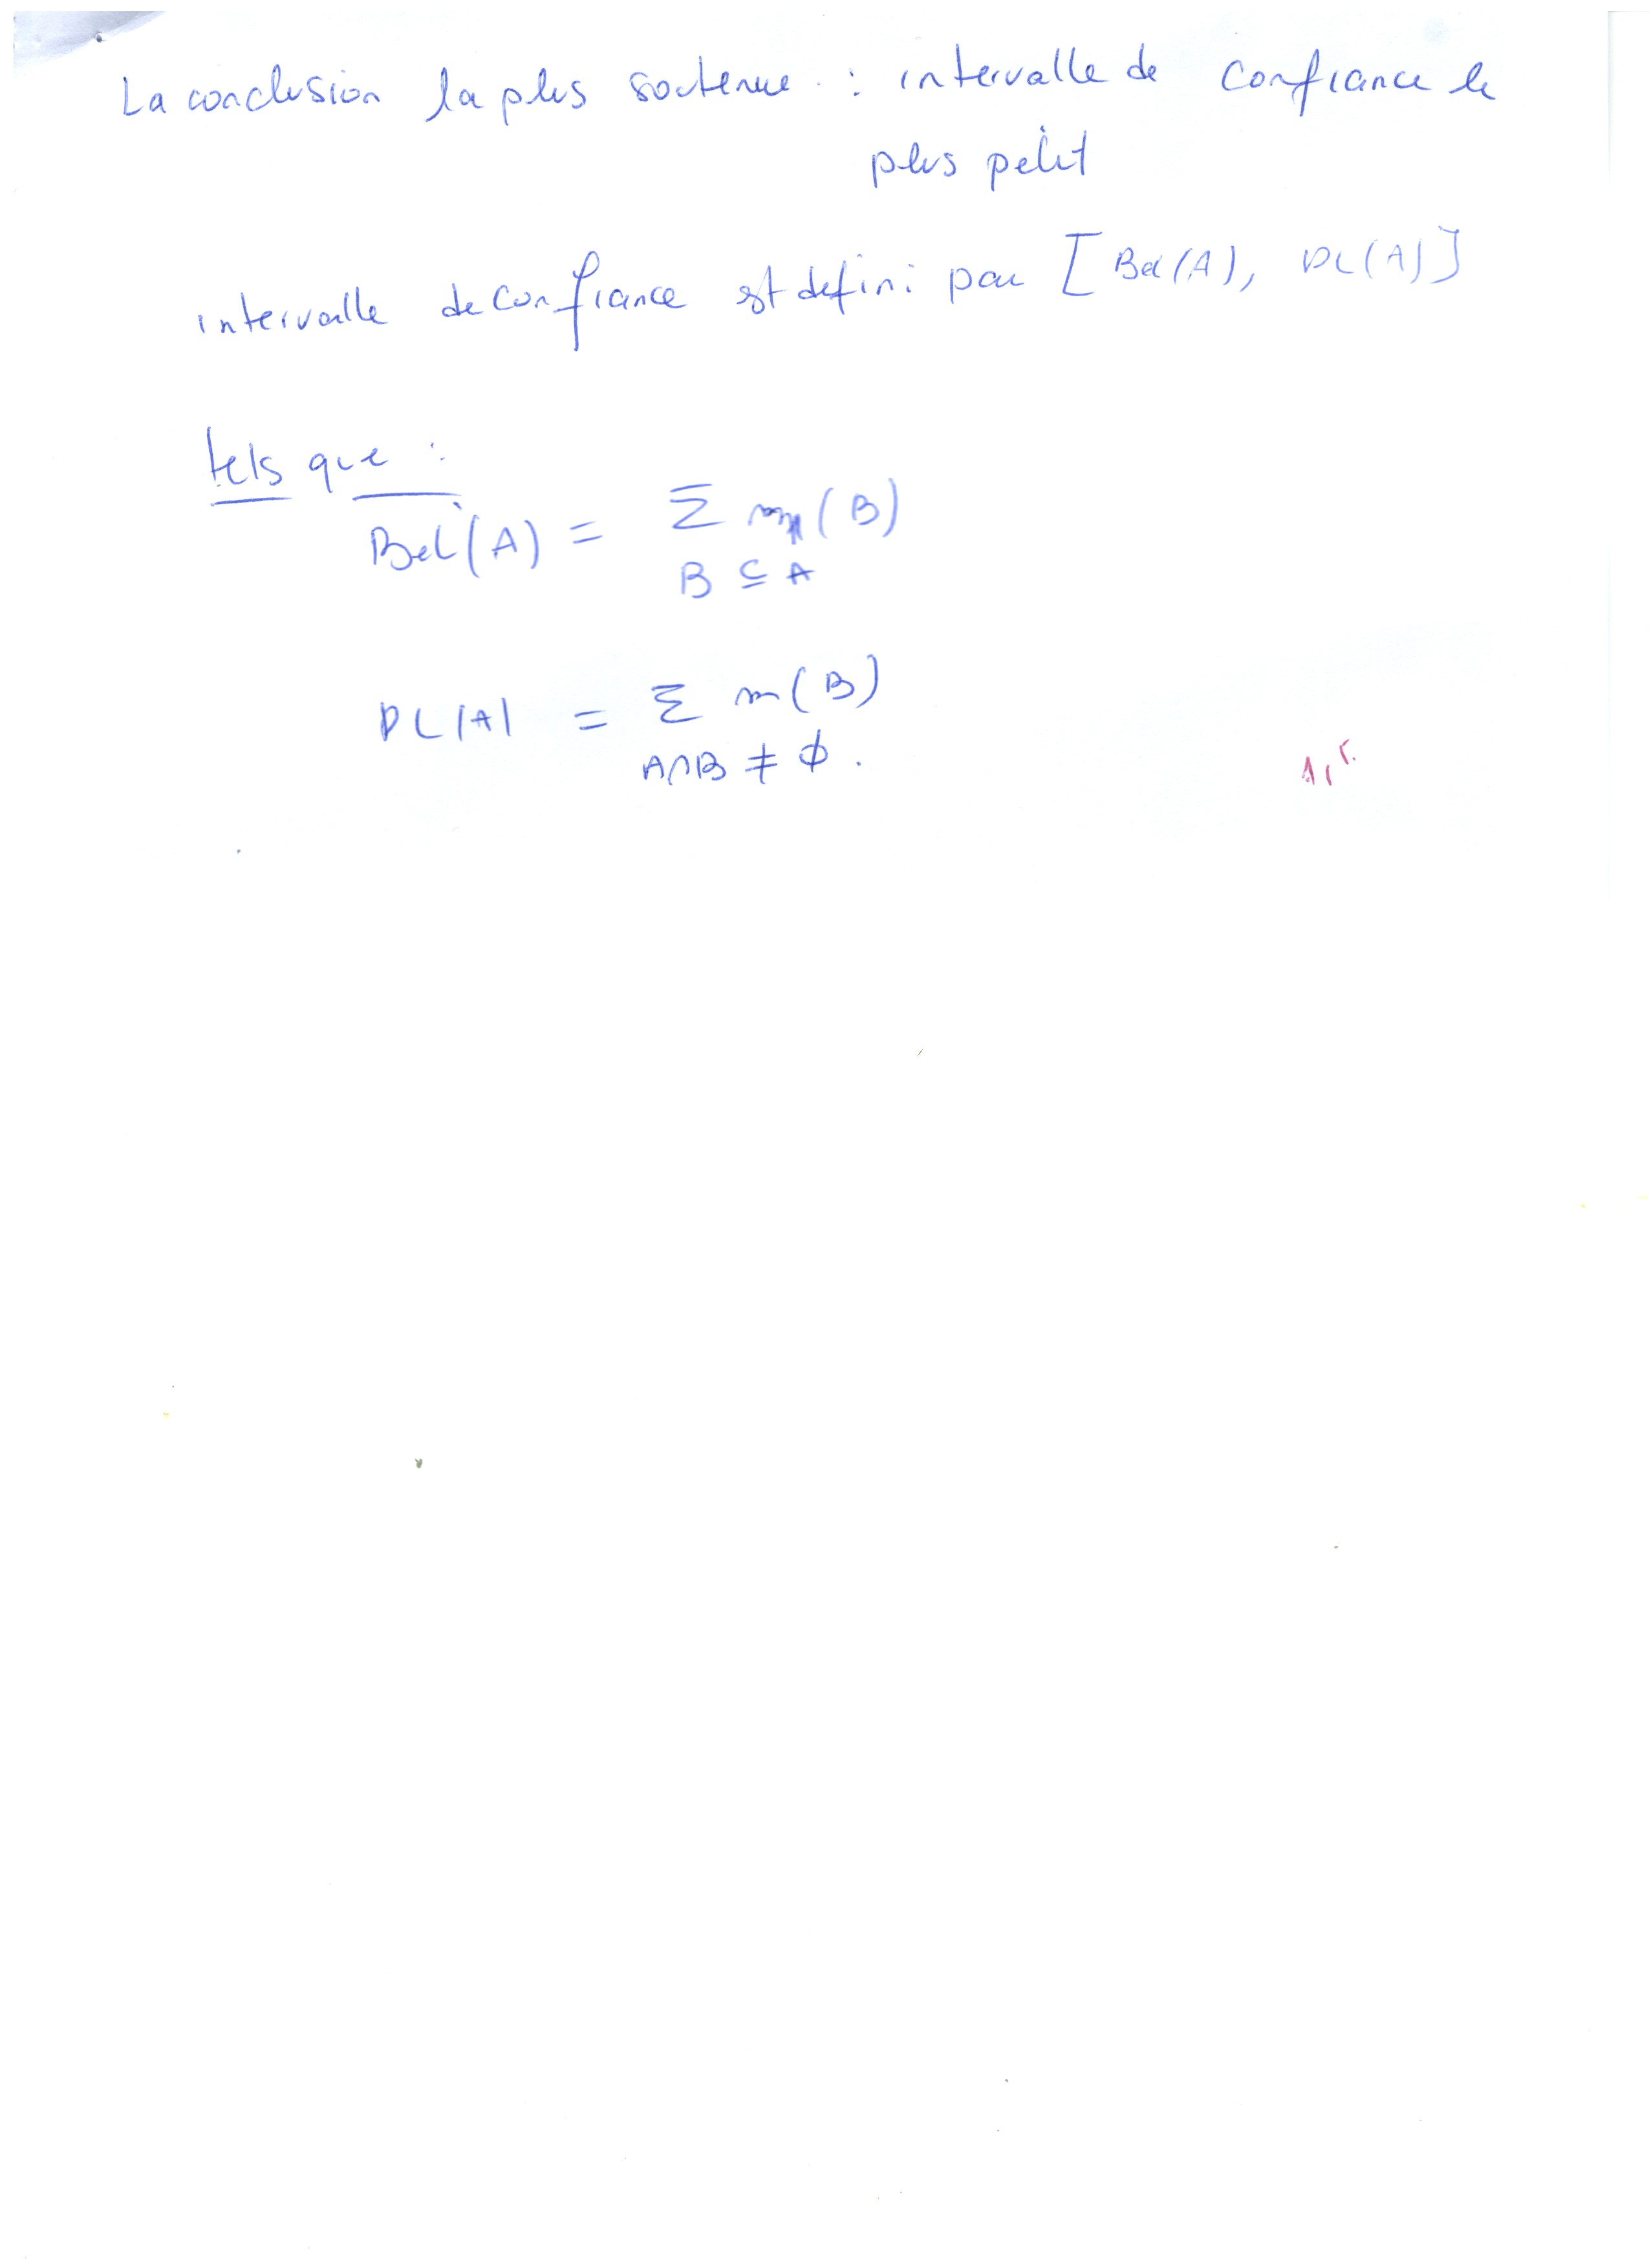 La conclusion la plus soutenue : intervalle de confiance le
plus petit
intervalle de confiance est defini par [Bel(A), PL(A)]
tels que :
Bel(A) = Σ m(B)
B ⊆ A
PL(A) = Σ m(B)
A∩B ≠ ϕ.